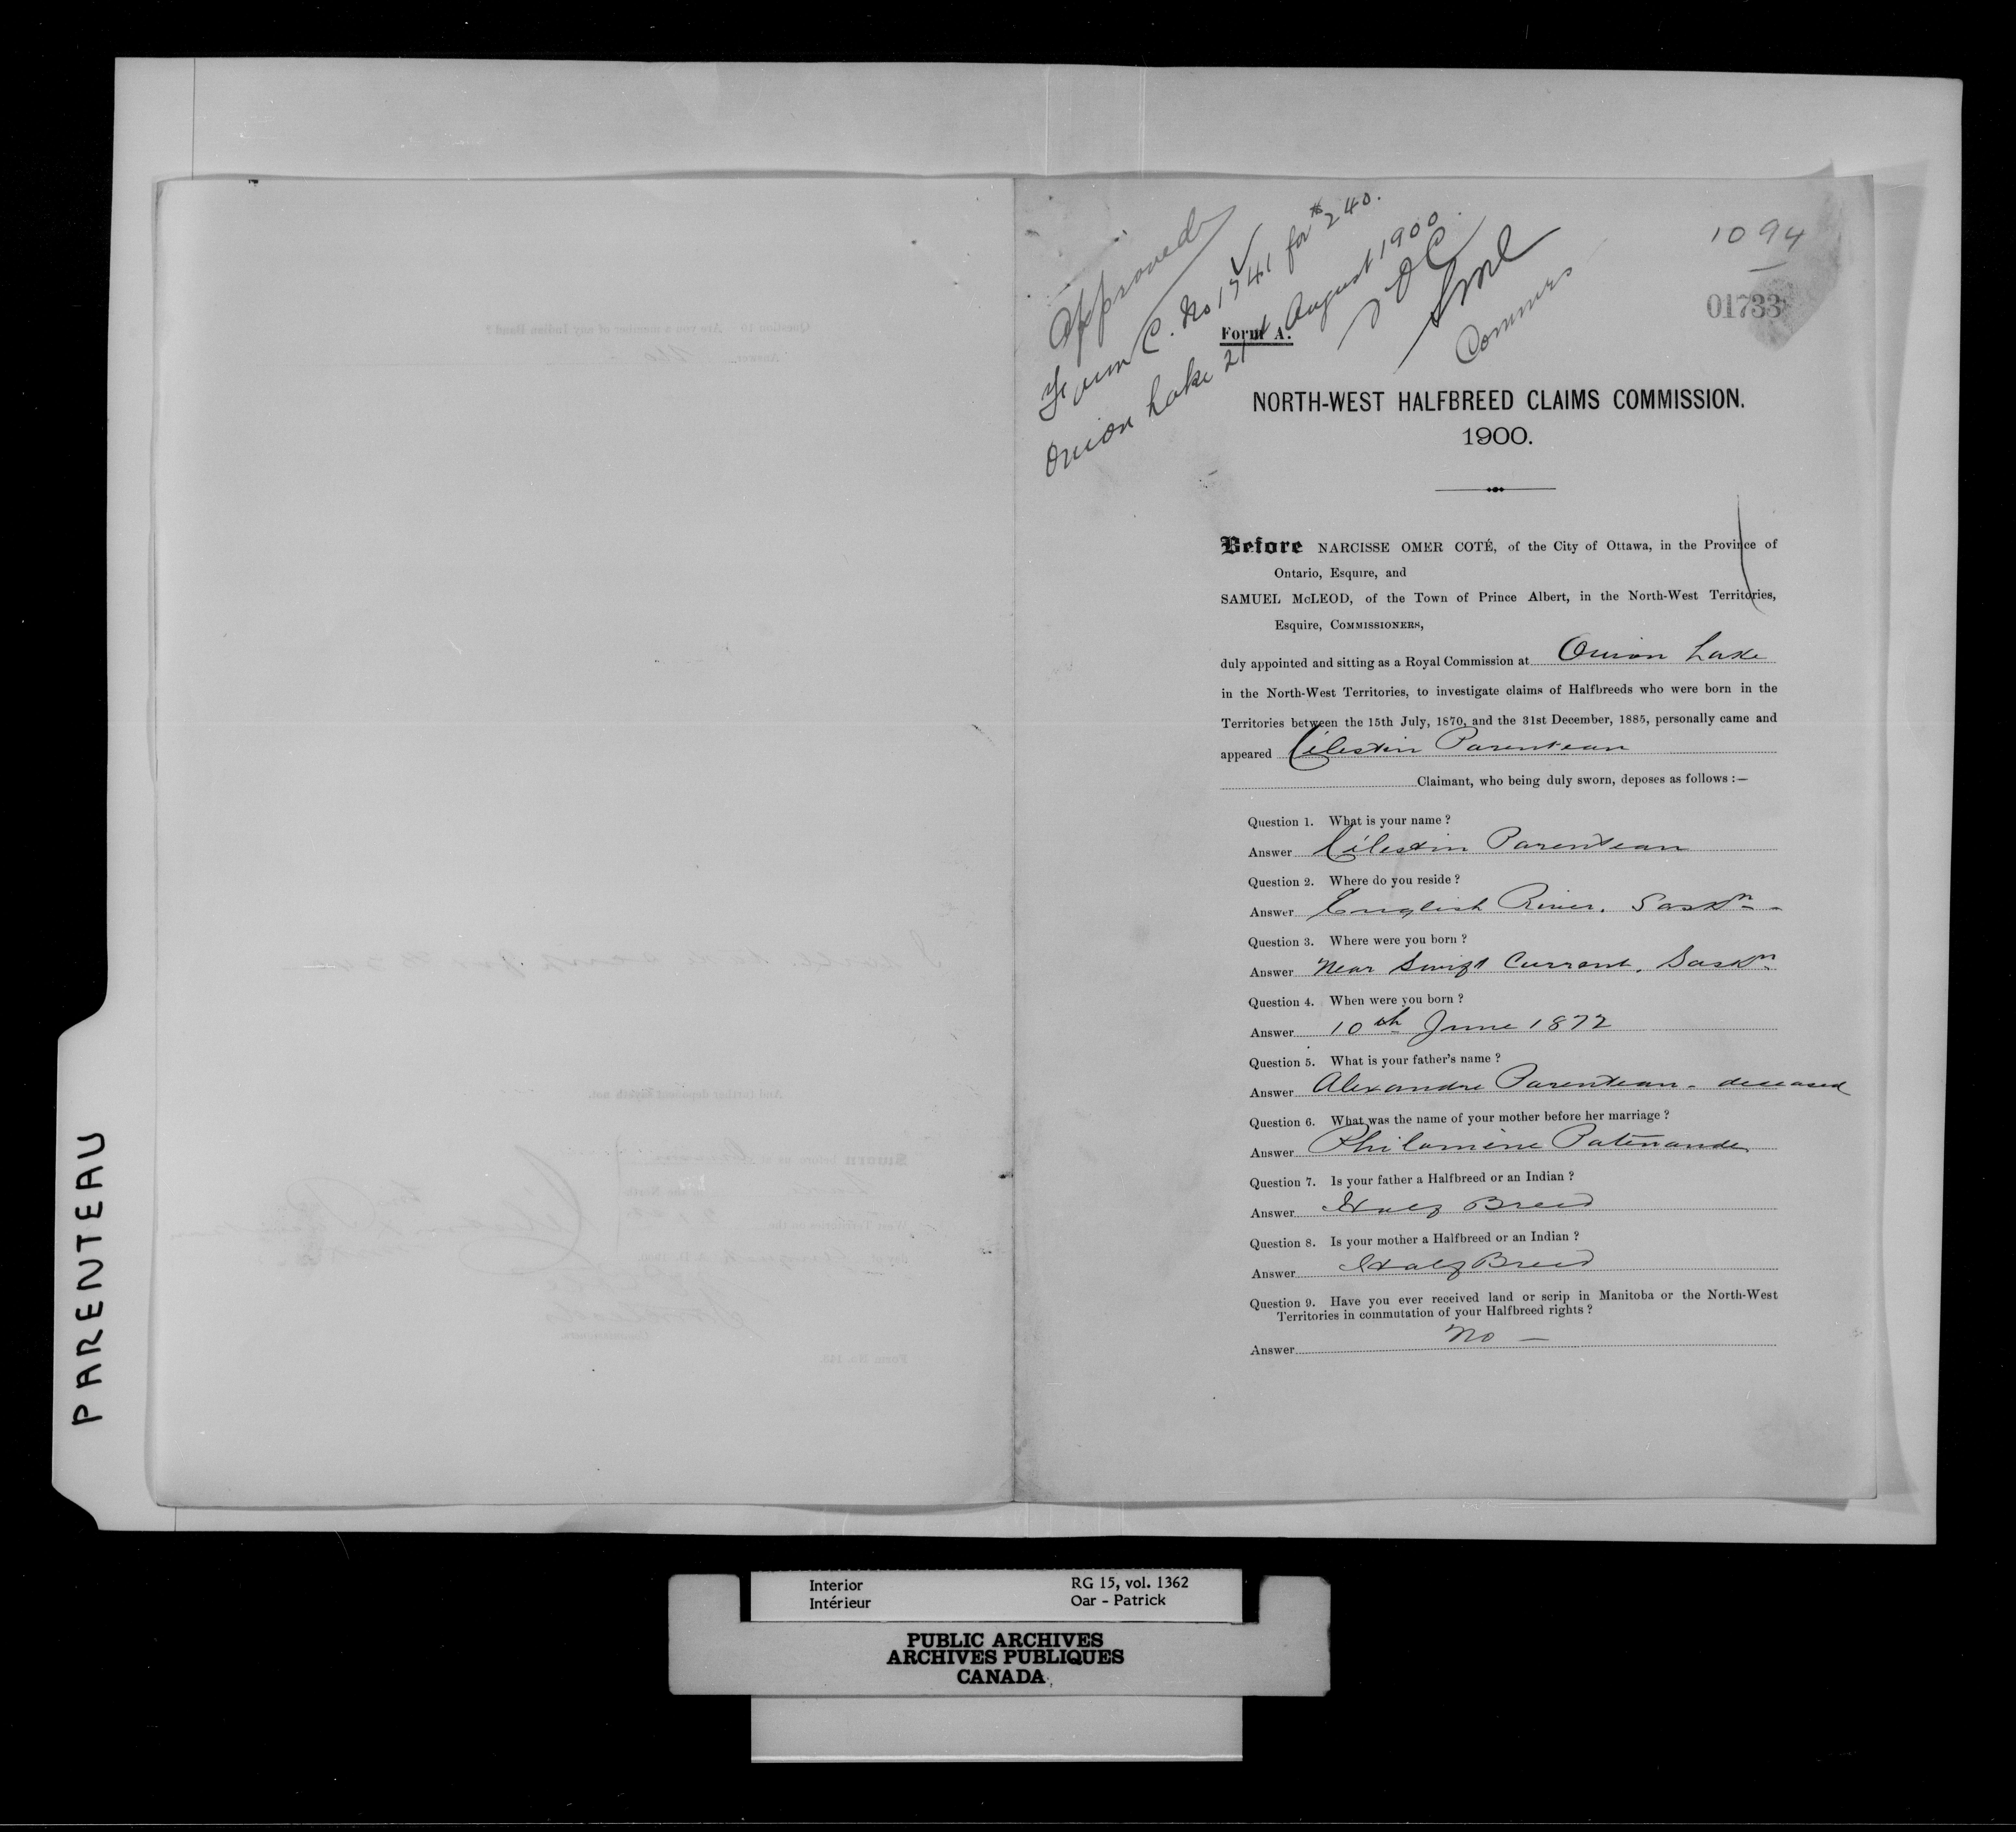 PARENTEAU
Approved
Form C. No 1741 for $240.
Onion Lake 21st August 1900.
NOC
SMcL
Commrs
1094
01733
Form A.
NORTH-WEST HALFBREED CLAIMS COMMISSION.
1900.
Before NARCISSE OMER COTÉ, of the City of Ottawa, in the Province of
Ontario, Esquire, and
SAMUEL McLEOD, of the Town of Prince Albert, in the North-West Territories,
Esquire, COMMISSIONERS,
duly appointed and sitting as a Royal Commission at Onion Lake
in the North-West Territories, to investigate claims of Halfbreeds who were born in the
Territories between the 15th July, 1870, and the 31st December, 1885, personally came and
appeared Célestin Parenteau
Claimant, who being duly sworn, deposes as follows :—
Question 1. What is your name ?
Answer Célestin Parenteau
Question 2. Where do you reside ?
Answer English River. Saskn -
Question 3. Where were you born ?
Answer Near Swift Current. Saskn
Question 4. When were you born ?
Answer 10th June 1872
Question 5. What is your father's name ?
Answer Alexandre Parenteau - deceased
Question 6. What was the name of your mother before her marriage ?
Answer Philomène Patenaude
Question 7. Is your father a Halfbreed or an Indian ?
Answer Half Breed
Question 8. Is your mother a Halfbreed or an Indian ?
Answer Half Breed
Question 9. Have you ever received land or scrip in Manitoba or the North-West
Territories in commutation of your Halfbreed rights ?
Answer No —
Interior RG 15, vol. 1362
Intérieur Oar - Patrick
PUBLIC ARCHIVES
ARCHIVES PUBLIQUES
CANADA